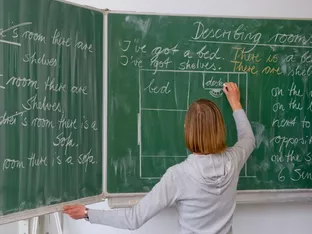 room there are
shelves
room there are
shelves.
room there is a
sofa.
room there is a sofa
Describing rooms
I've got a bed. There is a bed
I've got shelves. There are shel
bed
desk
on the
on the
next to
opposi
on the s
6 Sin